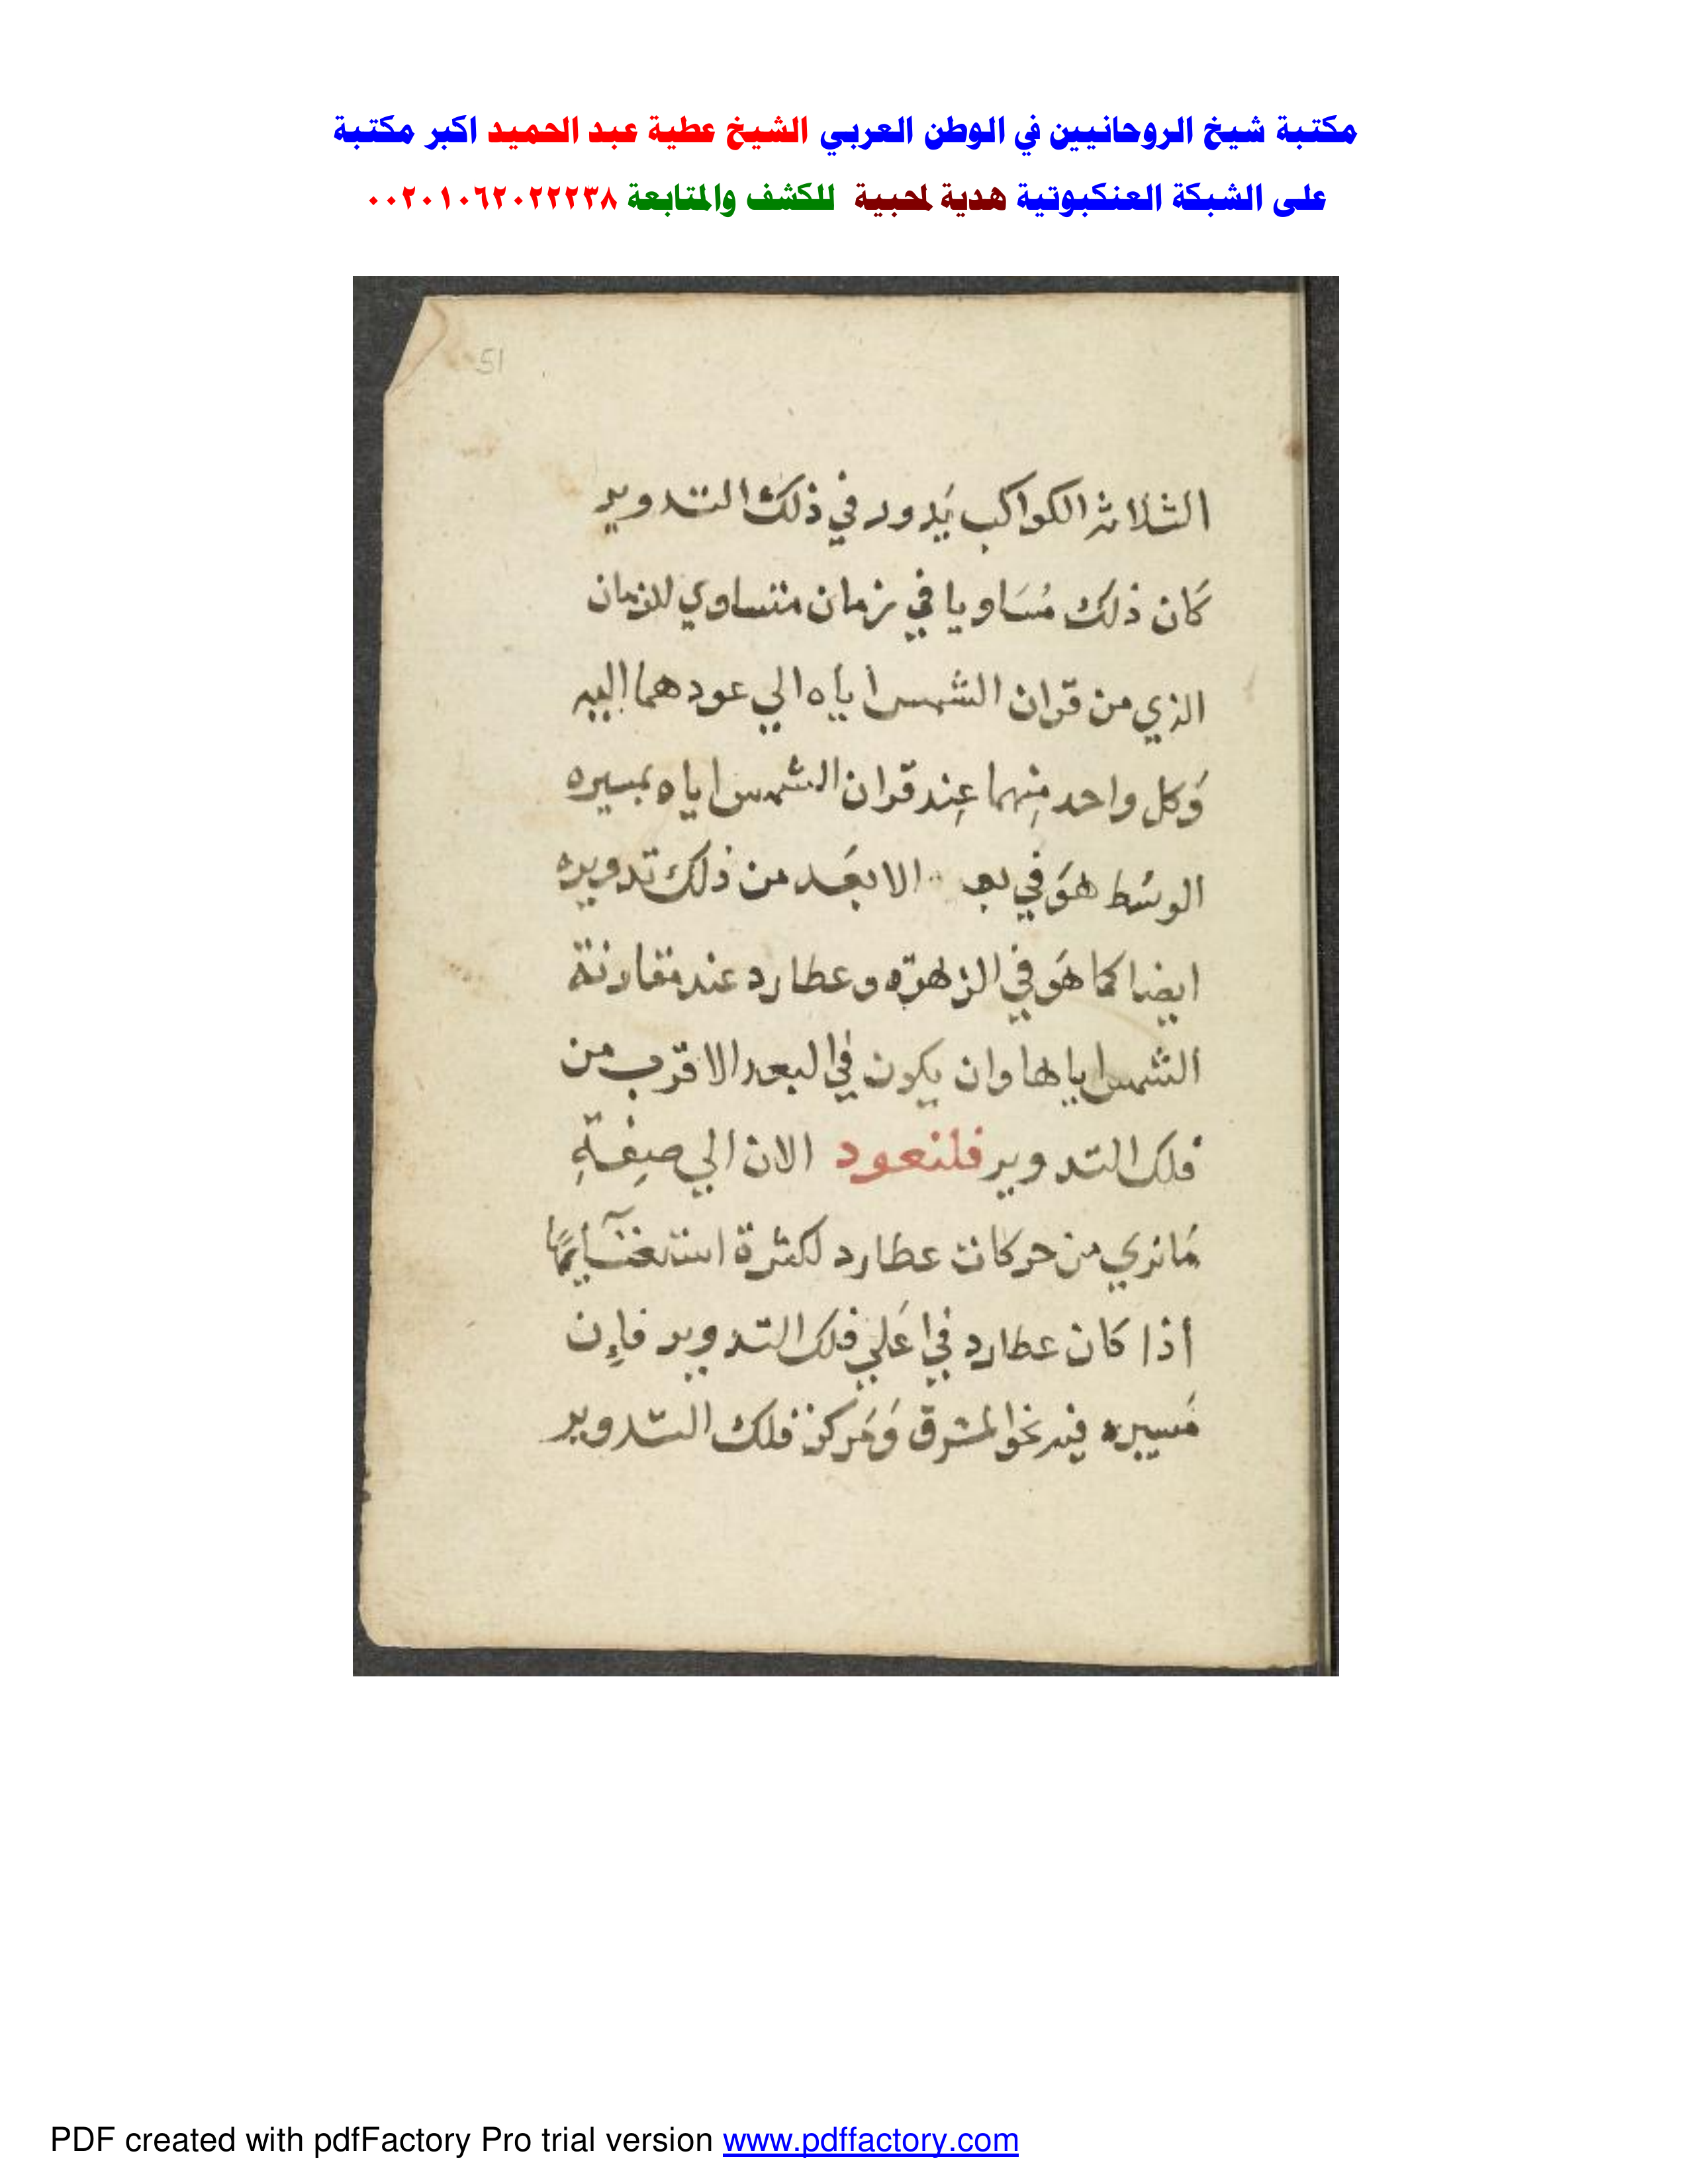 مكتبة شيخ الروحانيين في الوطن العربي الشيخ عطية عبد الحميد اكبر مكتبة
على الشبكة العنكبوتية هدية لمحبية للكشف والمتابعة ٠٠٢٠١٠٦٢٠٢٢٢٣٨
51
الثلاثه الكواكب يَدور في ذلك التدوير
كَان ذلك مُسَاويا في زمان متساوي للزمان
الذي من قران الشمس أياه الي عودهما اليه
وَكل واحد مِنهما عِند قران الشمس اياه بمسيره
الوسَط هوَ في الابعَد من ذلك تدويره
ايضا كما هوَ في الزهرَه وعطارد عند مقارنة
الشمس اياها وان يكون في البعد الاقرب من
فلك التدوير فلنعود الان الي صِفةِ
مَا نري من حركات عطارد لكثرة
أذا كان عطارد في اعَلي فلك التدوير فاِن
مَسيره فيه نحو المشرق وَمَركز فلك التدوير
PDF created with pdfFactory Pro trial version www.pdffactory.com